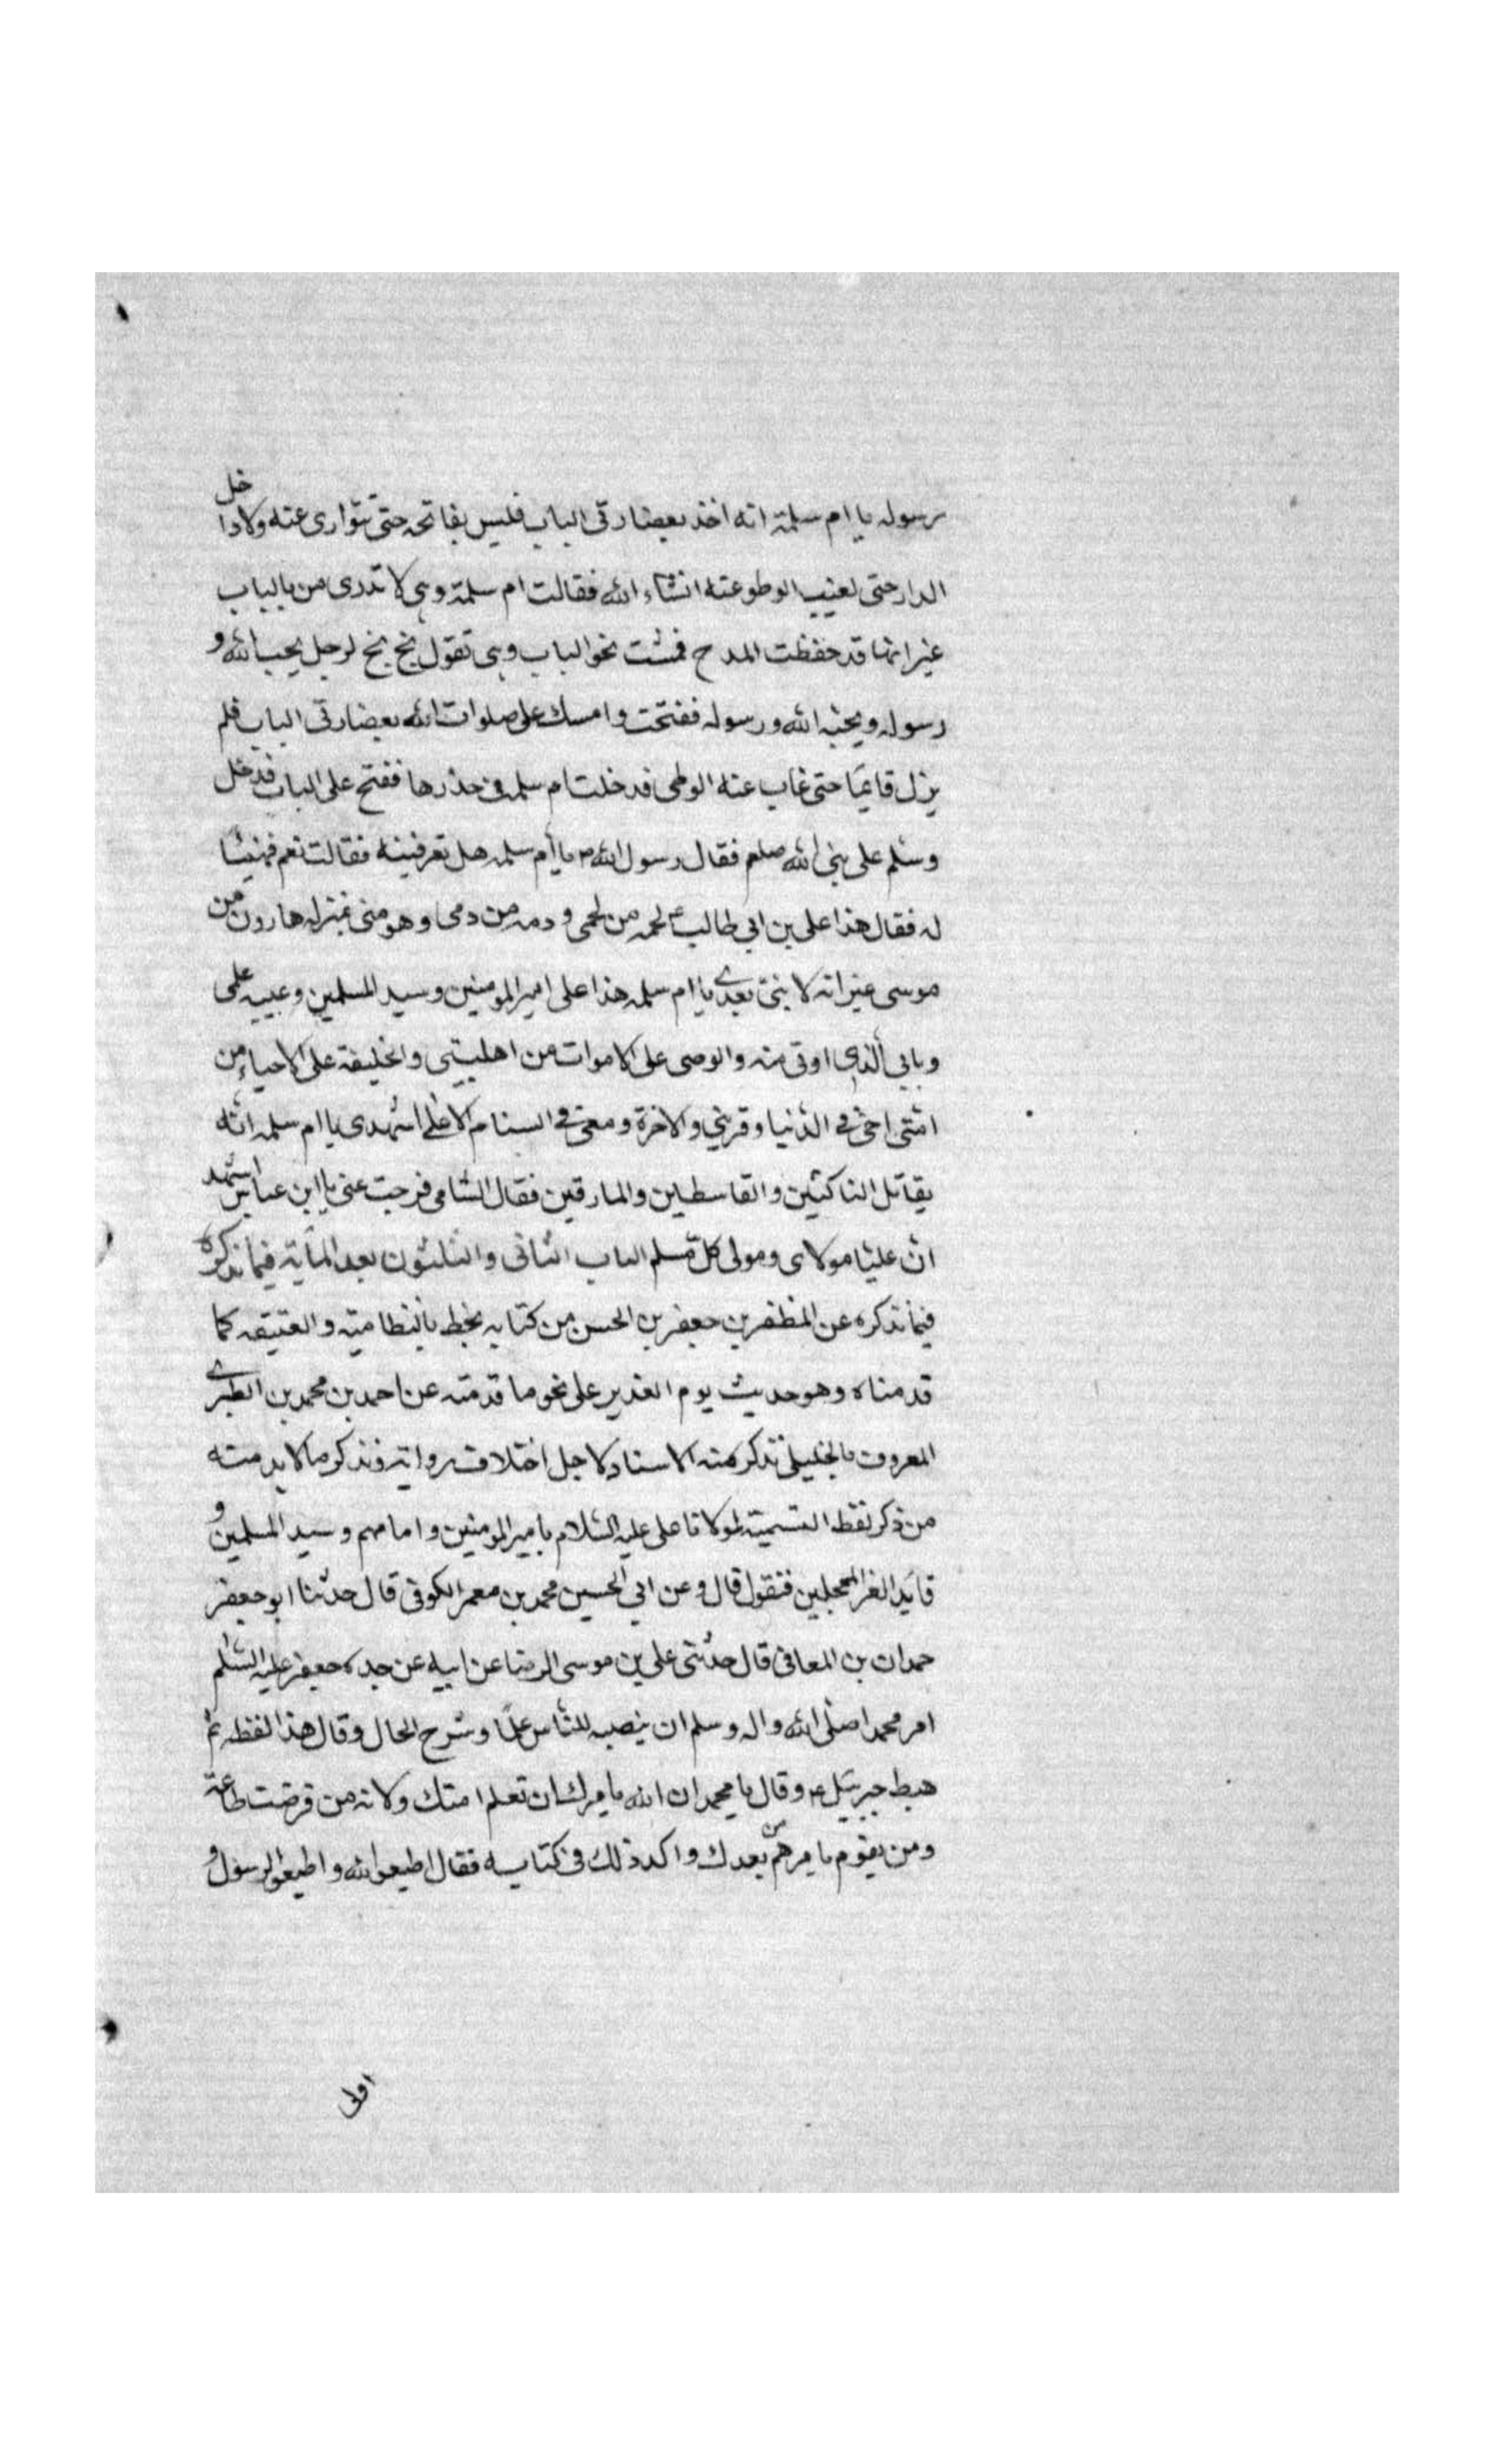 رسوله يا ام سلمة انه اخذ بعضادتى الباب فليس بفاتحه حتى تتوارى عنه ولا داخل
الدار حتى لغيب الوطو عنه انشاء الله فقالت ام سلمة وهى لا تدرى من بالباب
غير انها قد حفظت المدح فمشت نحو الباب وهى تقول بخ بخ لرجل يحب الله و
رسوله ويحبه الله ورسوله ففتحت وامسك على صلوات الله بعضادتى الباب فلم
يزل قايما حتى غاب عنه الوطى فدخلت ام سلمه فى خدرها ففتح على الباب فدخل
وسلم على نبى الله صلعم فقال رسول الله يا ام سلمه هل تعرفينه فقالت نعم فهنيئا
له فقال هذا على بن ابى طالب لحمه من لحمى ودمه من دمى وهو منى بمنزله هارون من
موسى غير انه لا نبى بعدى يا ام سلمه هذا على امير المومنين وسيد المسلمين وعيبه علمى
وبابى الذى اوتى منه والوصى على الاموات من اهلبيتى والخليفة على الاحياء من
امتى اخى فى الدنيا وقرينى والاخرة ومعى فى السنام الاعلى اشهدى يا ام سلمه انه
يقاتل الناكثين والقاسطين والمارقين فقال الشامى فرجت عنى يا ابن عباس اشهد
ان عليا مولاى ومولى كل مسلم الباب الثانى والثلثون بعد المأية فيما نذكره
فيما نذكره عن المظفر بن جعفر بن الحسن من كتابه بخط بالنظامية والعتيقه كما
قدمناه وهو حديث يوم الغدير على نحو ما قدمته عن احمد بن محمد بن الطبرى
المعروف بالخليلى نذكر منه الاسناد لاجل اختلاف رواته ونذكر ما لابد منه
من ذكر لفظ التسمية لمولانا على عليه السلام بامير المومنين وامامهم وسيد المسلمين و
قايد الغر المحجلين فنقول قال وعن ابى الحسين محمد بن معمر الكوفى قال حدثنا ابو جعفر
حمدان بن المعافى قال حدثنى على بن موسى الرضا عن ابيه عن جده جعفر عليه السلم
امر محمدا صلى الله واله وسلم ان ينصبه للناس علما وشرح الحال وقال هذا لفظه ثم
هبط جبرئيل وقال يا محمد ان الله يامرك ان تعلم امتك ولاته من فرضت طاعته
ومن يقوم بامرهم من بعدك واكد ذلك فى كتابه فقال اطيعوا الله واطيعوا الرسول و
اولى